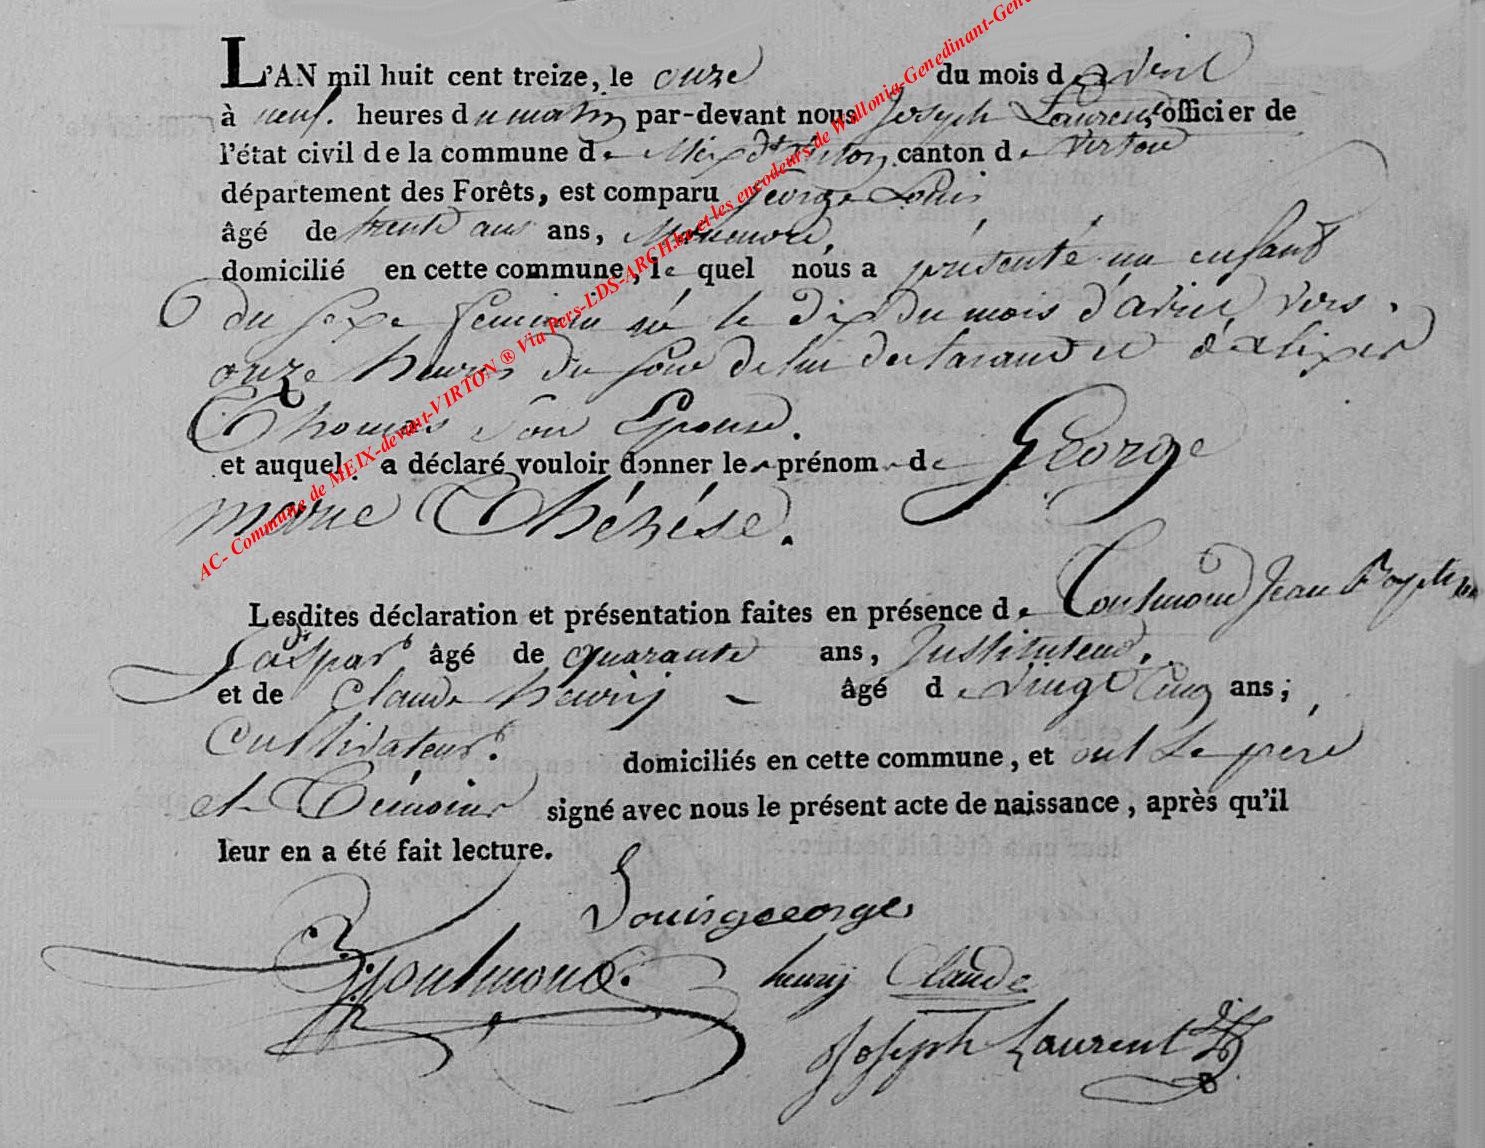 L'AN mil huit cent treize, le onze du mois d'avril
à neuf. heures du matin par-devant nous Joseph Laurent officier de
l'état civil de la commune de Meix dt Virton canton de Virton
département des Forêts, est comparu George Louis
âgé de trente ans ans,
domicilié en cette commune, le quel nous a présenté un enfant
du sexe feminin né le dix du mois d'avril vers
onze heures du jour de lui declarant et d'
Thomas son Epouse.
et auquel a déclaré vouloir donner le prénom de George
marie Thérèse.
Lesdites déclaration et présentation faites en présence de Jean Baptiste
Gaspar âgé de quarante ans, Instituteur,
et de Claude henrij âgé de vingt Cinq ans;
Cultivateur. domiciliés en cette commune, et ont le père
et Témoins signé avec nous le présent acte de naissance, après qu'il
leur en a été fait lecture.
Louis george
henrij Claude
Joseph Laurent
AC- Commune de MEIX-devant-VIRTON ® Via Pers-LDS-ARCH.be et les encodeurs de Wallonia-Genedinant-Gene